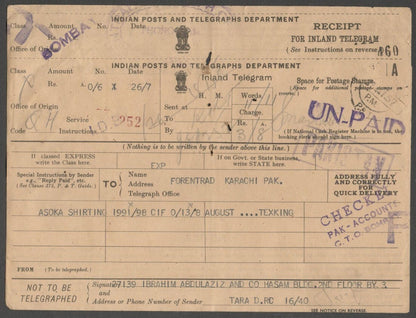 INDIAN POSTS AND TELEGRAPHS DEPARTMENT
RECEIPT
FOR INLAND TELEGRAM
(See Instructions on reverse)
Class
Amount
Rs.
Words
Office of Origin
BOMBAY
A60
1A
INDIAN POSTS AND TELEGRAPHS DEPARTMENT
Inland Telegram
Space for Postage Stamps.
Class
Amount
Rs. 0/6 X 26/7
H. M.
Words
Office of Origin
Sent at
To
By
Service
Instructions
252
3/8
UN-PAID
(If National Cash Register Machine is used, the booking clerk should sign here.)
Nothing is to be written above this line.
If classed EXPRESS
write the Class here.
EXP
If on Govt. or State business,
write STATE here.
Special Instructions by Sender
e.g., "Reply Paid" etc.
(See Clause 275, P. & T. Guide.)
TO
Name
Address
Telegraph Office
FORENTRAD KARACHI PAK.
ADDRESS FULLY
AND CORRECTLY
FOR
QUICK DELIVERY
ASOKA SHIRTING 1991/98 CIF 0/13/8 AUGUST ....TEXKING
CHECKED
PAK-ACCOUNTS
G.T.O. BOMBAY
F
FROM (To be telegraphed.)
NOT TO BE
TELEGRAPHED
Signature
27139 IBRAHIM ABDULAZIZ AND CO HASAM BLDG. 2ND FLOOR BY.3
Address or Phone Number of Sender
TARA D.RC 16/40
SEE NOTICE ON REVERSE.